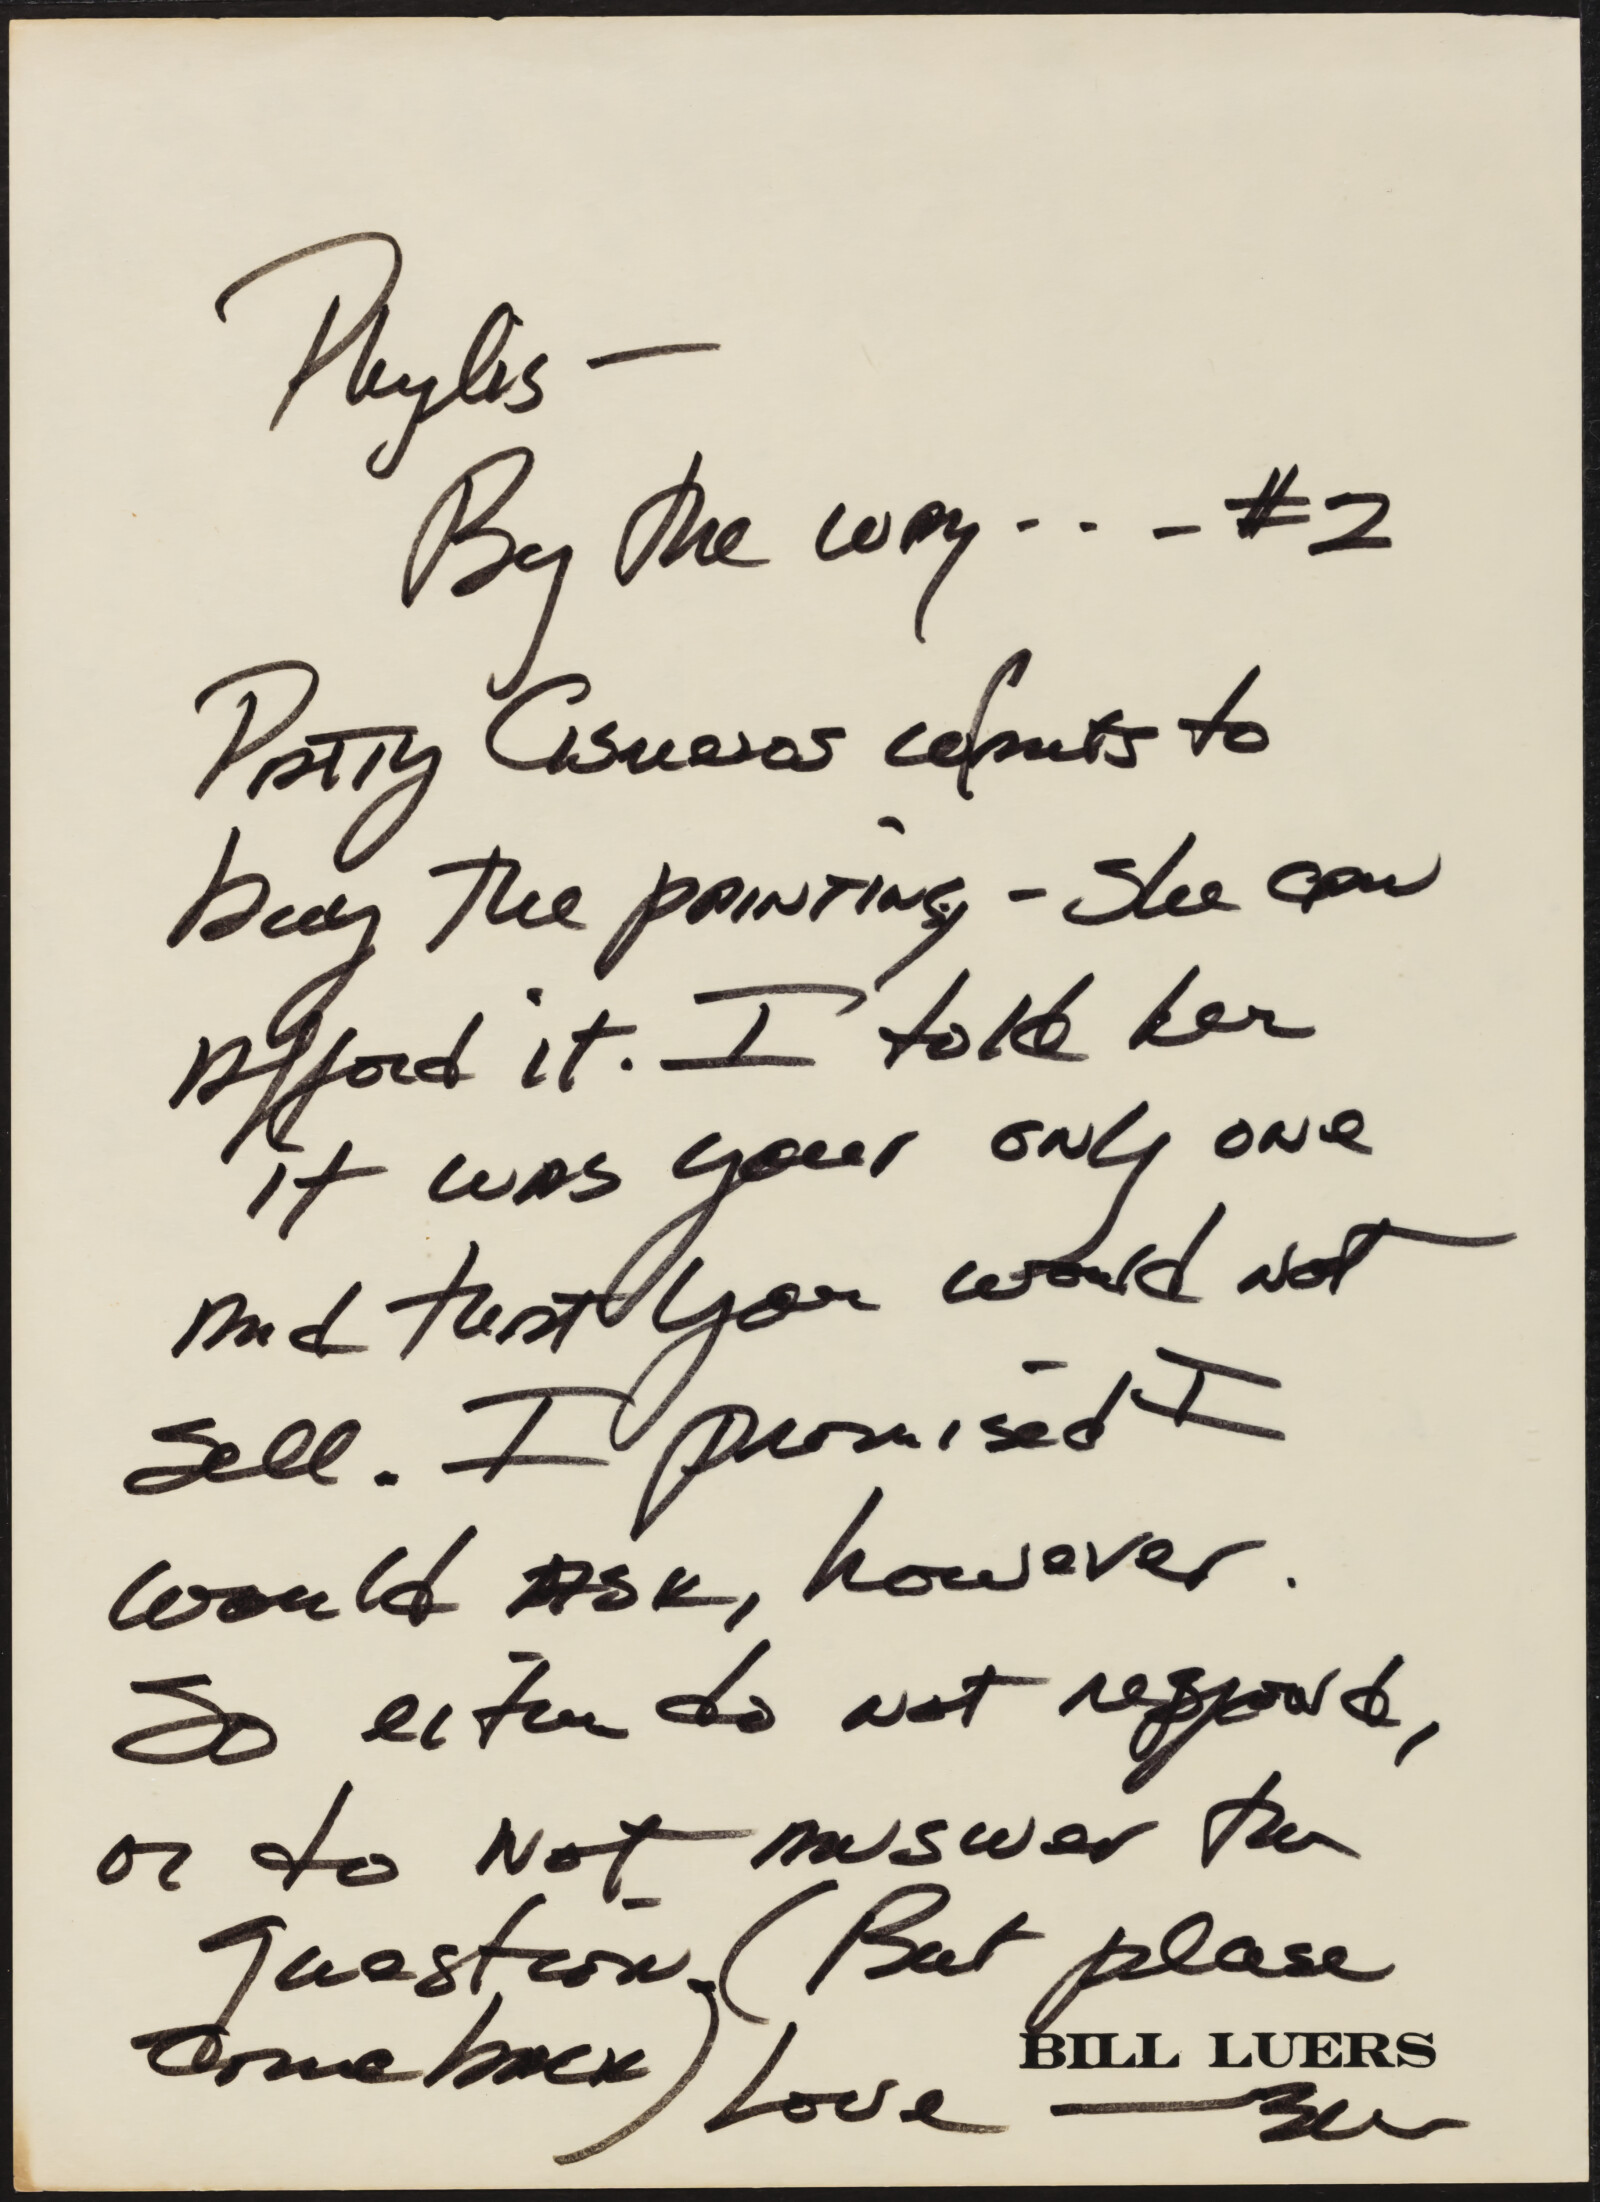 Phylis —
By the way . . . - #2
Patty Cisneros wants to
buy the painting - She can
afford it. I told her
it was your only one
and that you would not
sell. I promised I
would ask, however.
So either do not respond,
or do not answer the
question. (But please
come back) Love
BILL LUERS
— Bill